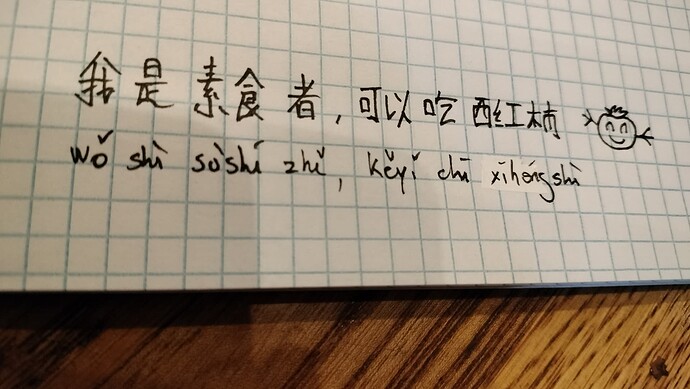 我是素食者，可以吃西红柿
wǒ shì sùshí zhě, kěyǐ chī xīhóngshì